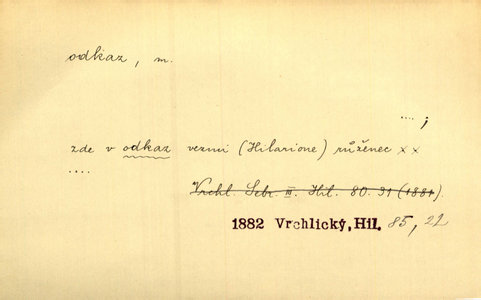 odkaz, m.
.... ;
zde v odkaz vezmi (Hilarione) růženec xx
....
Vrchl. Sebr. III. Hil. 80. 31 (1881).
1882 Vrchlický, Hil. 85, 22